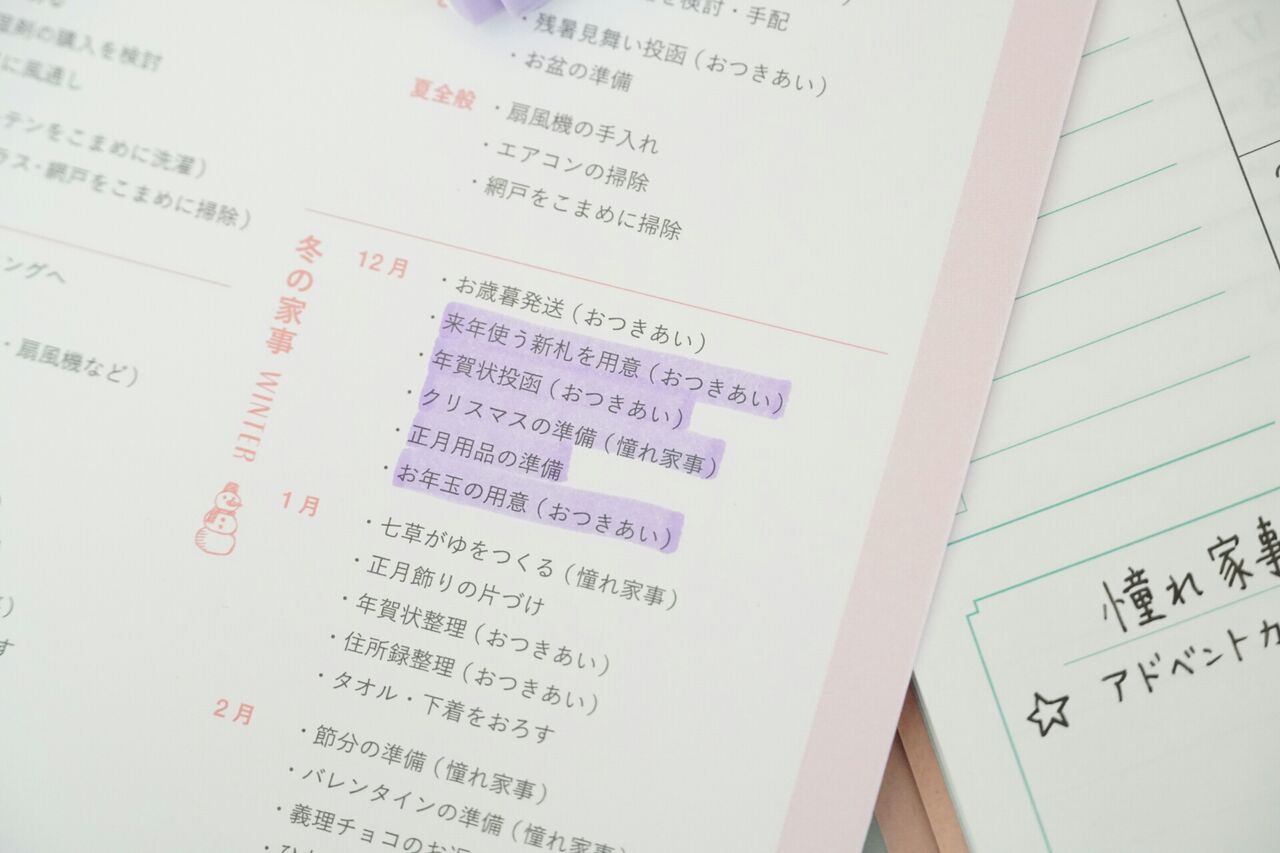 を検討・手配
・残暑見舞い投函(おつきあい)
・お盆の準備
夏全般
・扇風機の手入れ
・エアコンの掃除
・網戸をこまめに掃除
剤の購入を検討
に風通し
テンをこまめに洗濯)
ラス・網戸をこまめに掃除)
ングへ
・扇風機など)
冬の家事 WINTER
12月
・お歳暮発送(おつきあい)
・来年使う新札を用意(おつきあい)
・年賀状投函(おつきあい)
・クリスマスの準備(憧れ家事)
・正月用品の準備
・お年玉の用意(おつきあい)
1月
・七草がゆをつくる(憧れ家事)
・正月飾りの片づけ
・年賀状整理(おつきあい)
・住所録整理(おつきあい)
・タオル・下着をおろす
2月
・節分の準備(憧れ家事)
・バレンタインの準備(憧れ家事
・義理チョコのお返
憧れ家事
☆ アドベントカ